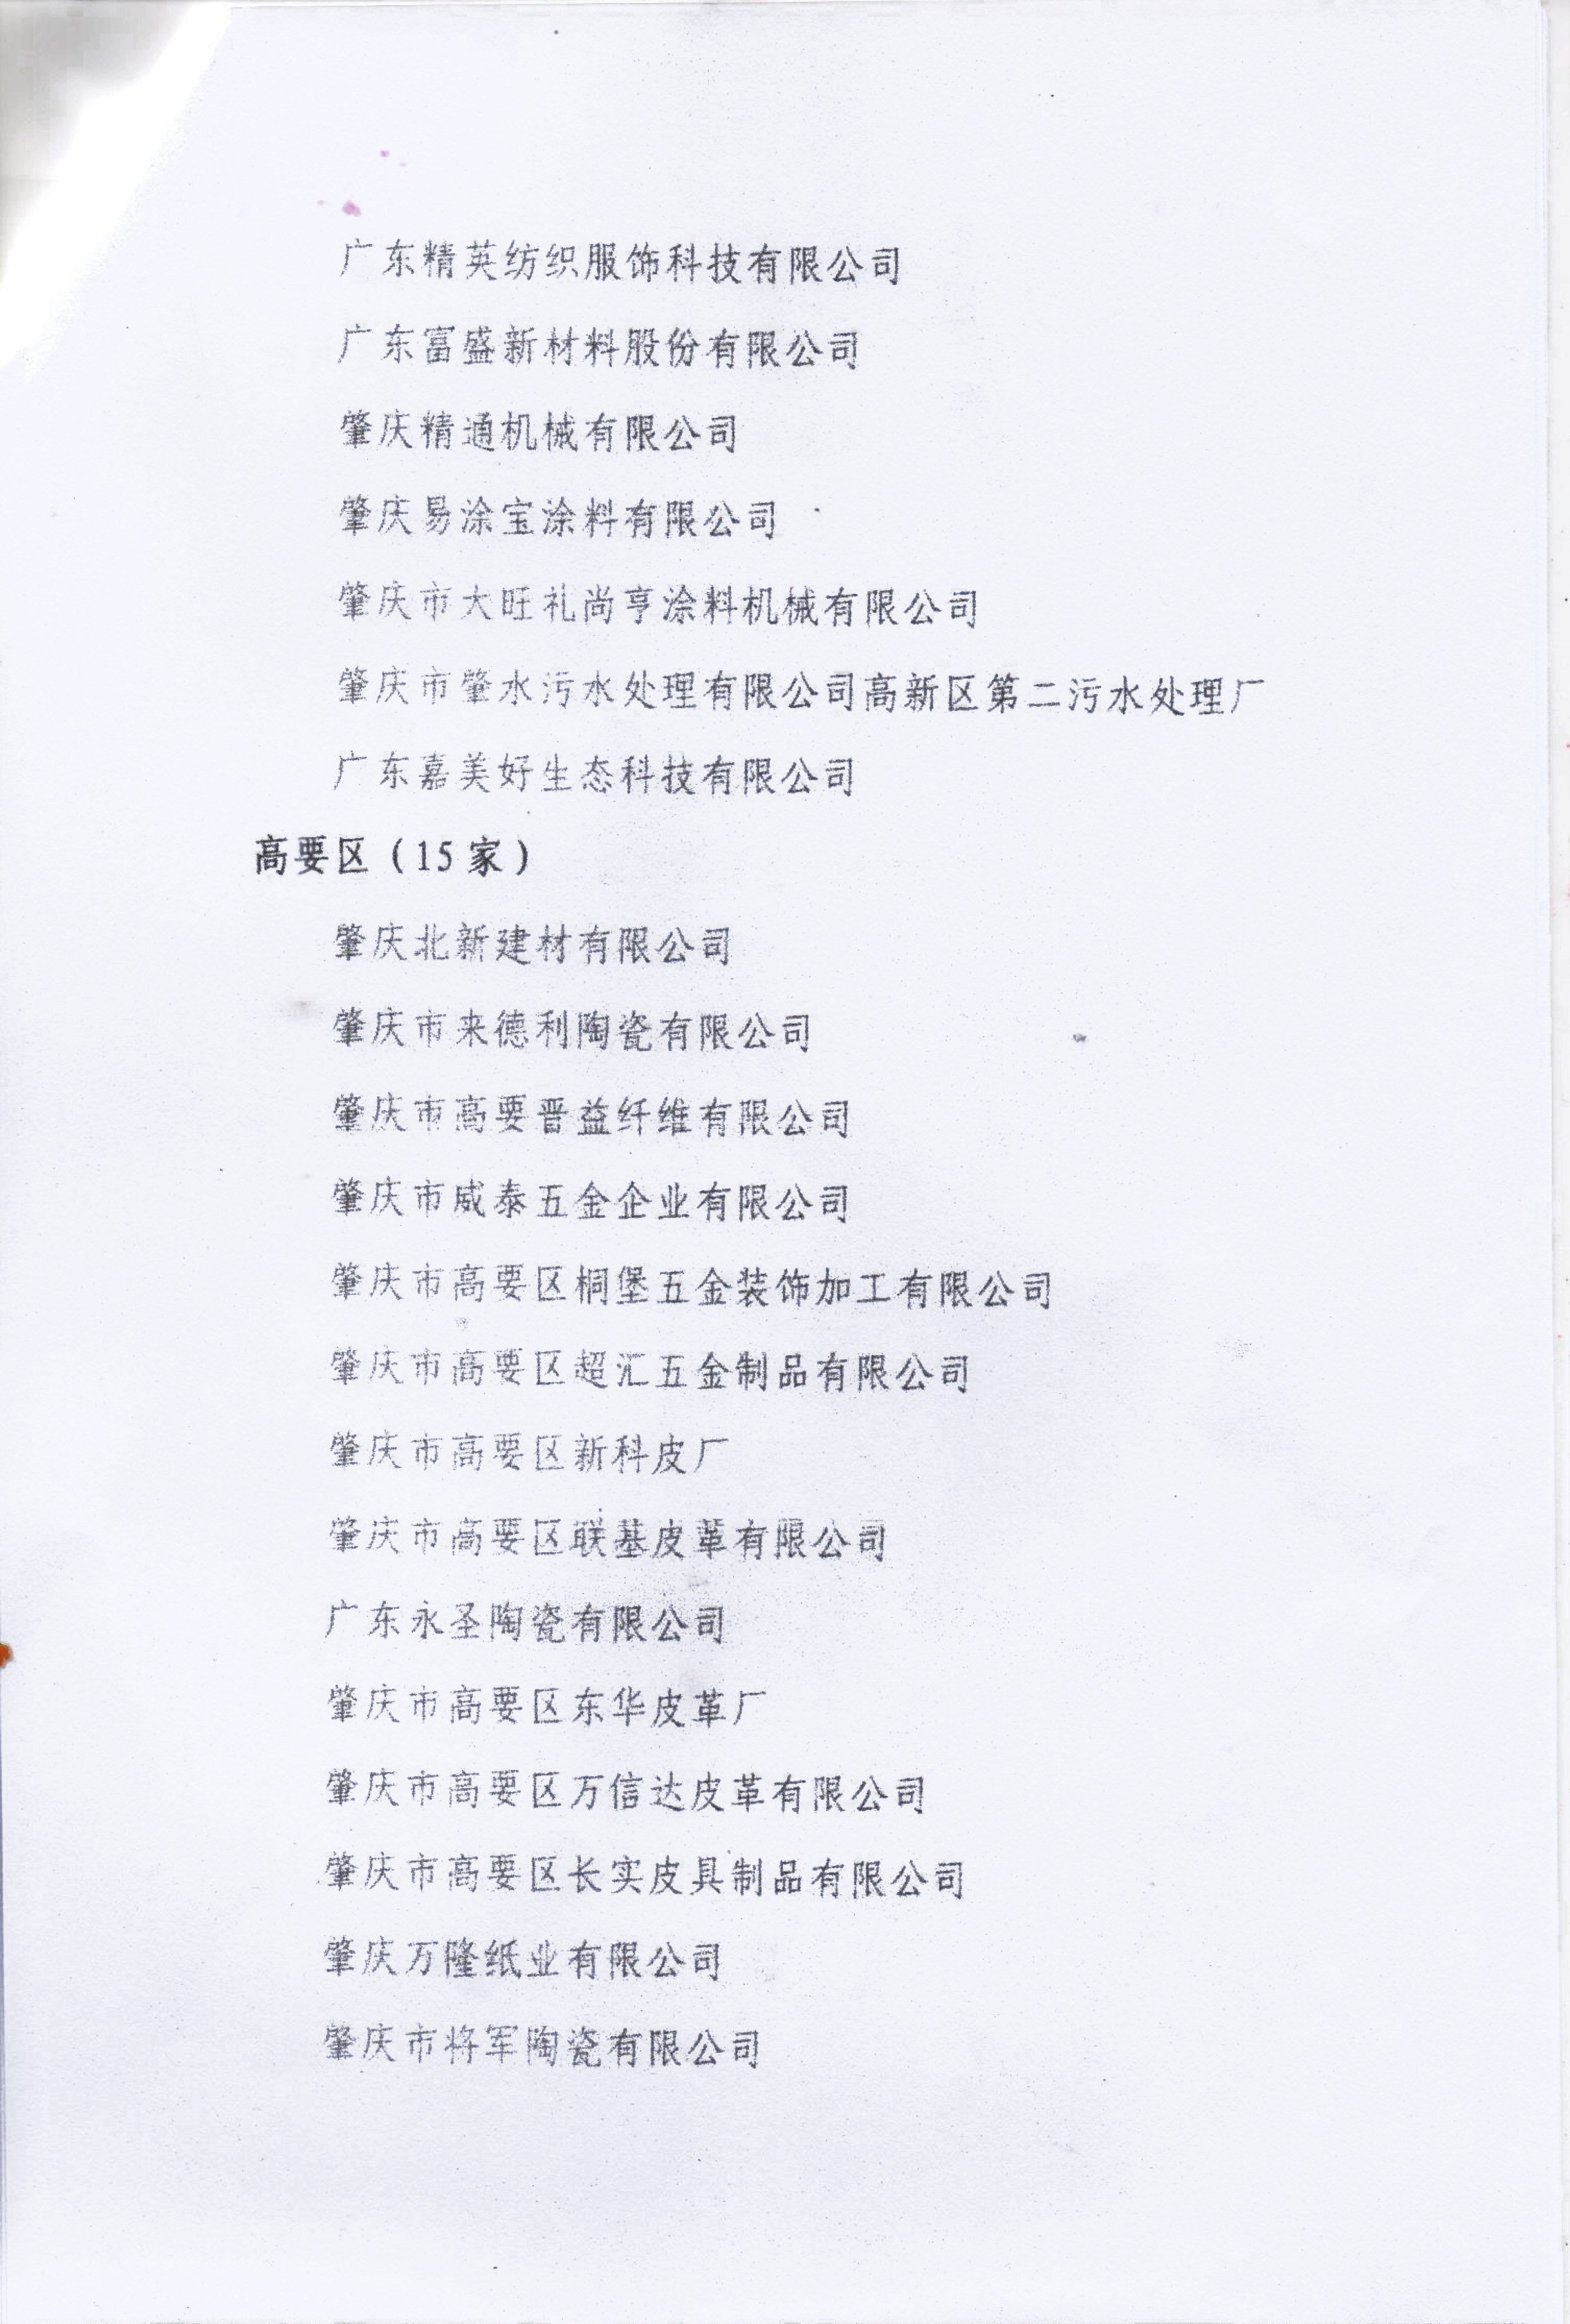 广东精英纺织服饰科技有限公司
广东富盛新材料股份有限公司
肇庆精通机械有限公司
肇庆易涂宝涂料有限公司
肇庆市大旺礼尚亨涂料机械有限公司
肇庆市肇水污水处理有限公司高新区第二污水处理厂
广东嘉美好生态科技有限公司
高要区（15家）
肇庆北新建材有限公司
肇庆市来德利陶瓷有限公司
肇庆市高要晋益纤维有限公司
肇庆市威泰五金企业有限公司
肇庆市高要区桐堡五金装饰加工有限公司
肇庆市高要区超汇五金制品有限公司
肇庆市高要区新科皮厂
肇庆市高要区联基皮革有限公司
广东永圣陶瓷有限公司
肇庆市高要区东华皮革厂
肇庆市高要区万信达皮革有限公司
肇庆市高要区长实皮具制品有限公司
肇庆万隆纸业有限公司
肇庆市将军陶瓷有限公司